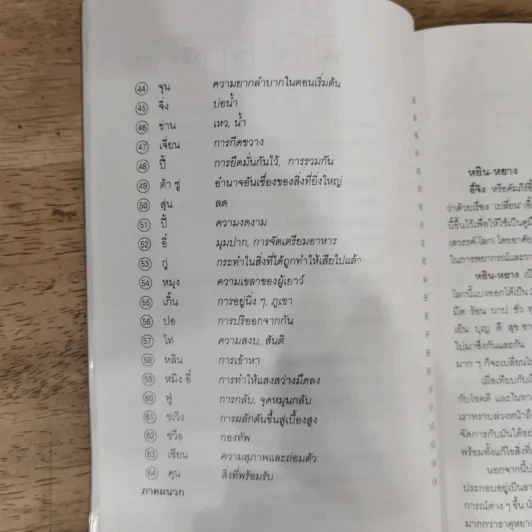 44 จุน ความยากลำบากในตอนเริ่มต้น
45 จิง บ่อน้ำ
46 ข่าน เหว, น้ำ
47 เจี่ยน การกีดขวาง
48 ปี้ การยึดมั่นกันไว้, การรวมกัน
49 ต้า ซู่ อำนาจอันเชื่องของสิ่งที่ยิ่งใหญ่
50 สุ่น ลด
51 ปี้ ความงดงาม
52 อี๋ มุมปาก, การจัดเตรียมอาหาร
53 กู่ กระทำในสิ่งที่ได้ถูกทำให้เสียไปแล้ว
54 หมุง ความเขลาของผู้เยาว์
55 เกิ้น การอยู่นิ่ง ๆ, ภูเขา
56 ปอ การปริออกจากกัน
57 ไท่ ความสงบ, สันติ
58 หลิน การเข้าหา
59 หมิง อี๋ การทำให้แสงสว่างมืดลง
60 ฟู่ การกลับ, จุดหมุนกลับ
61 ชเวิง การผลักดันขึ้นสู่เบื้องสูง
62 ซรือ กองทัพ
63 เชียน ความสุภาพและถ่อมตัว
64 คุน สิ่งที่พร้อมรับ
ภาคผนวก
หยิน-หยาง
อี้จิง หรือคัมภีร์อี้
ว่าด้วยเรื่อง "เปลี่ยน"
นี้ขึ้นไว้เพื่อให้ใช้เป็นคู่มื
(สวรรค์-โลก) โดยอาศัย
ในการพยากรณ์และวา
หยิน-หยาง เป็
โลกนี้แบ่งออกได้เป็น
มืด ร้อน บวก ชั่ว
เย็น บุญ ดี สุข
ไปมาซึ่งกันและกัน
มาก ๆ ก็จะเปลี่ยน
เมื่อเทียบกับ
กับโชคดี และในทา
เราทราบล่วงหน้าถึ
จัดการกับมันได้อย่
พร้อมทั้งแก้ไขสิ่งที่
นอกจากนี้
ประกอบอยู่เป็น
การณ์ต่าง ๆ ขึ้น
มากกว่าธาตุหยา